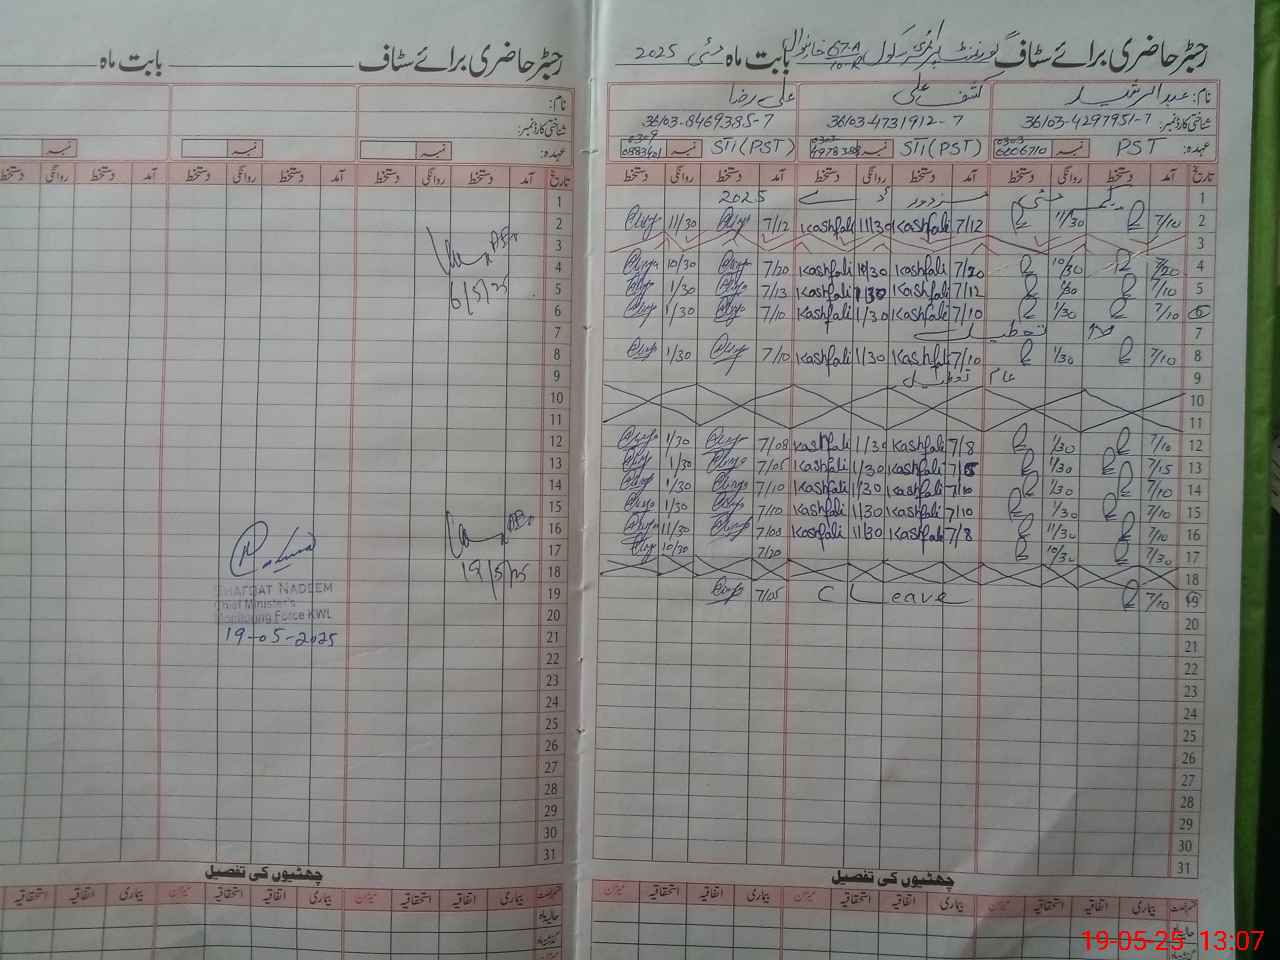 رجسٹر حاضری برائے سٹاف گورنمنٹ پرائمری سکول 67-A/10-R خانیوال بابت ماہ مئی 2025
نام: عبدالرشید کشف علی علی رضا
شناختی کارڈ نمبر: 36103-4297951-7 36103-4731912-7 36103-8469385-7
عہدہ: PST نمبر STI (PST) نمبر STI (PST) نمبر
تاریخ آمد دستخط روانگی دستخط آمد دستخط روانگی دستخط آمد دستخط روانگی دستخط
1 یکم مئی مزدور ڈے 2025
2 7/10 11/30 7/12 Kashfali 11/30 Kashfali 7/12 11/30
3
4 7/20 10/30 7/20 Kashfali 10/30 Kashfali 7/20 10/30
5 7/10 1/30 7/12 Kashfali 1/30 Kashfali 7/13 1/30
6 7/10 1/30 7/10 Kashfali 1/30 Kashfali 7/10 1/30
7 تعطیل
8 7/10 1/30 7/10 Kashfali 1/30 Kashfali 7/10 1/30
9 عام تعطیل
10
11
12 7/10 1/30 7/8 Kashfali 1/30 Kashfali 7/08 1/30
13 7/15 1/30 7/05 Kashfali 1/30 Kashfali 7/05 1/30
14 7/10 1/30 7/10 Kashfali 1/30 Kashfali 7/10 1/30
15 7/10 1/30 7/10 Kashfali 1/30 Kashfali 7/10 1/30
16 7/10 11/30 7/8 Kashfali 11/30 Kashfali 7/08 11/30
17 7/30 10/30 7/20 10/30
18
19 7/10 C Leave 7/05
20
21
22
23
24
25
26
27
28
29
30
31
چھٹیوں کی تفصیل
بیماری اتفاقیہ استحقاقیہ میزان بیماری اتفاقیہ استحقاقیہ میزان بیماری اتفاقیہ استحقاقیہ میزان
حالیہ ماہ
رجسٹر حاضری برائے سٹاف بابت ماہ
نام:
شناختی کارڈ نمبر:
عہدہ: نمبر نمبر نمبر
تاریخ آمد دستخط روانگی دستخط آمد دستخط روانگی دستخط آمد دستخط
1
2
3
4
5
6
7
8
9
10
11
12
13
14
15
16
17
18
19
20
21
22
23
24
25
26
27
28
29
30
31
6/5/25
19/5/25
SHAFQAT NADEEM
Chief Minister's
Monitoring Force KWL
19-05-2025
چھٹیوں کی تفصیل
بیماری اتفاقیہ استحقاقیہ میزان بیماری اتفاقیہ استحقاقیہ میزان بیماری اتفاقیہ استحقاقیہ
حالیہ ماہ
گذشتہ ماہ
19-05-25 13:07